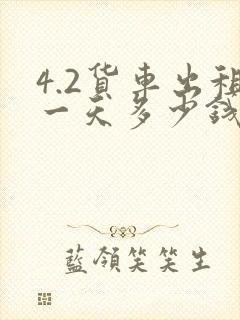 4.2貨車出租
一天多少錢
藍領笑笑生